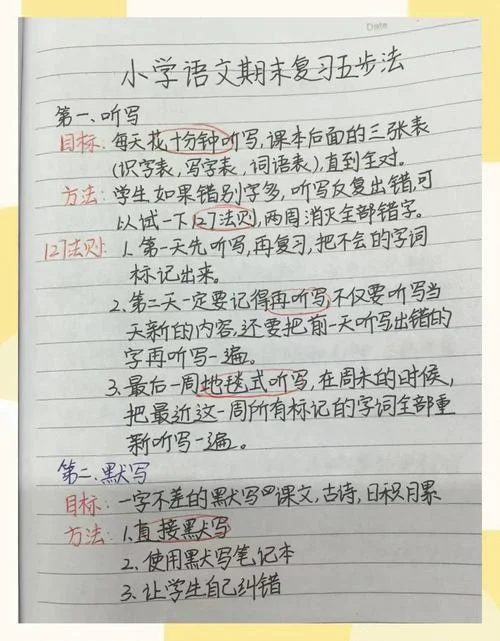 Date
小学语文期末复习五步法
第一、听写
目标:每天花十分钟听写,课本后面的三张表
(识字表,写字表,词语表),直到全对。
方法:学生如果错别字多,听写反复出错,可
以试一下127法则,两周消灭全部错字。
127法则:1.第一天先听写,再复习,把不会的字词
标记出来。
2.第二天一定要记得再听写不仅要听写当
天新的内容,还要把前一天听写出错的
字再听写一遍。
3.最后一周地毯式听写,在周末的时候,
把最近这一周所有标记的字词全部重
新听写一遍。
第二、默写
目标:一字不差的默写课文,古诗,日积月累
方法:1.直接默写
2.使用默写笔记本
3.让学生自己纠错